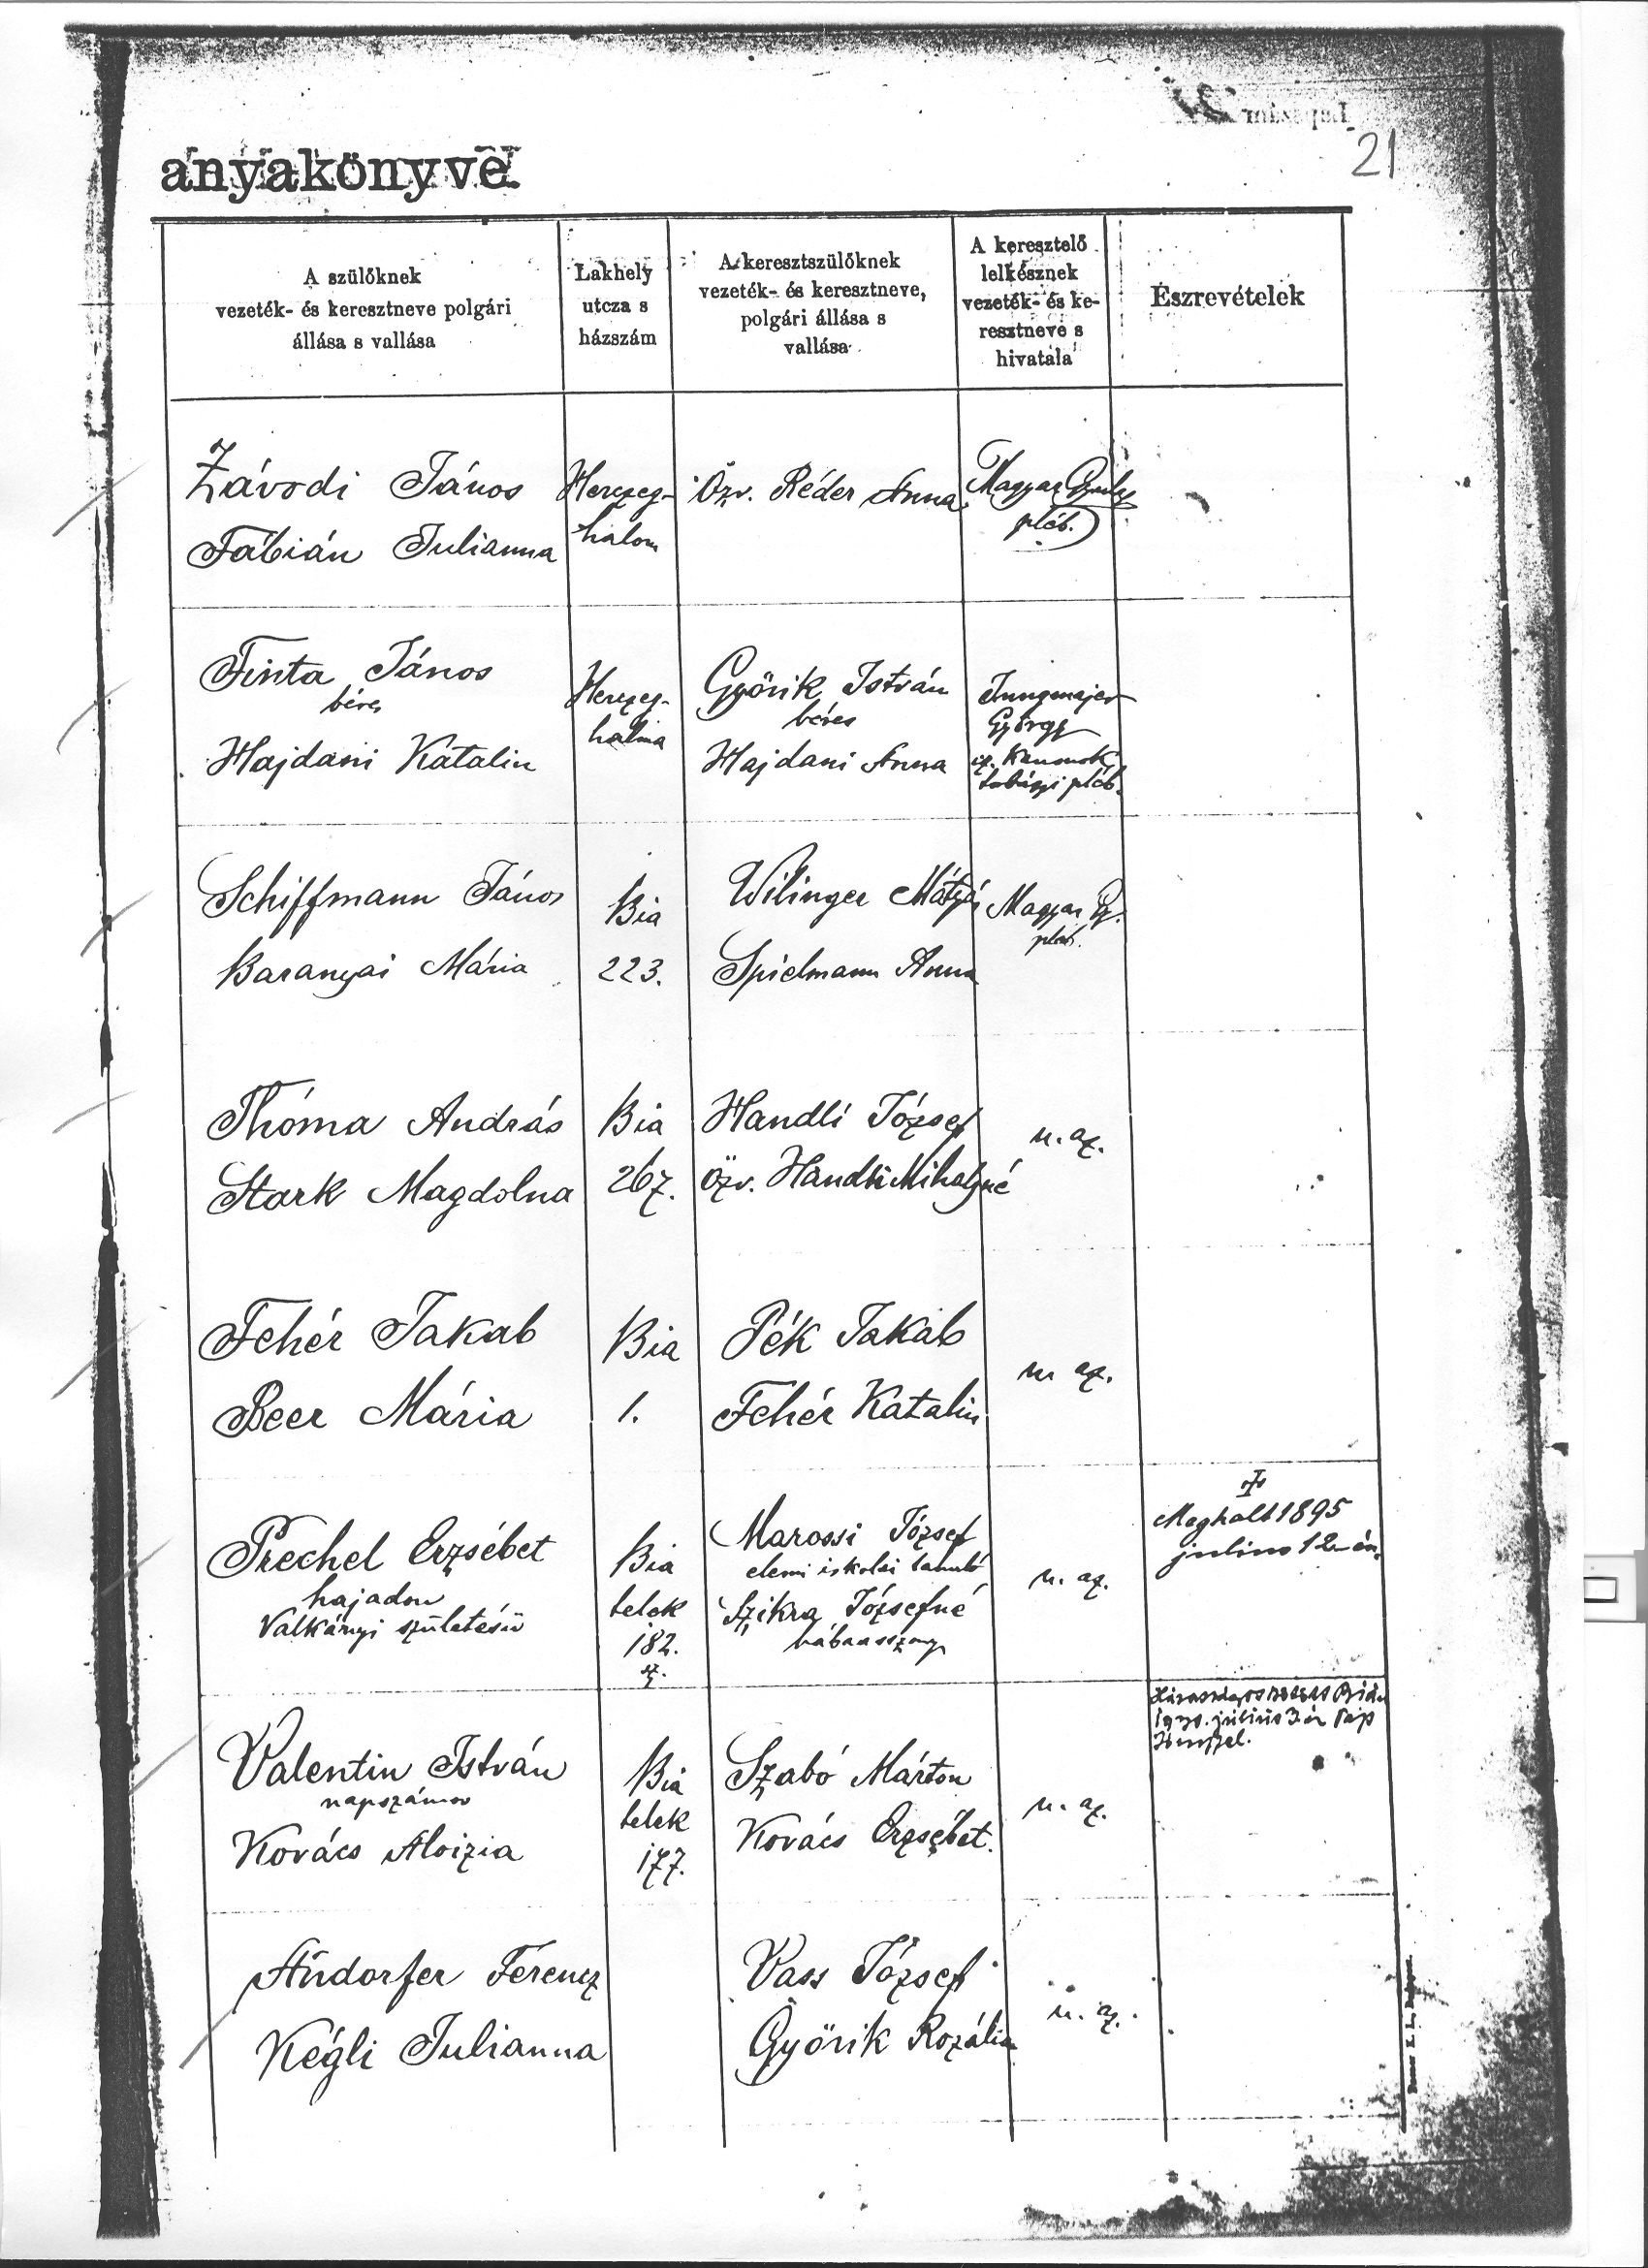 21
anyakönyve.
A szülőknek
vezeték- és keresztneve polgári
állása s vallása
Lakhely
utcza s
házszám
A keresztszülőknek
vezeték- és keresztneve,
polgári állása s
vallása
A keresztelő
lelkésznek
vezeték- és ke-
resztneve s
hivatala
Észrevételek
Závodi János
Fábián Julianna
Herczeg-
halom
Özv. Réder Anna
Magyar
pléb.
Finta János
béres
Hajdani Katalin
Herczeg-
halma
Győrik István
béres
Hajdani Anna
Jungmajer
György
cz. kanonok
pléb.
Schiffmann János
Baranyai Mária
Bia
223.
Wilinger Mátyás
Spielmann Anna
Magyar Gy.
pleb.
Thóma András
Stark Magdolna
Bia
267.
Handli József
özv. Handli Mihályné
u. az.
Fehér Jakab
Beer Mária
Bia
1.
Pék Jakab
Fehér Katalin
u. az.
Prechel Erzsébet
hajadon
Valkányi születésü
Bia
telek
182.
sz.
Marossi József
elemi iskolai tanuló
Szikra Józsefné
bábaasszony
u. az.
Meghalt 1895
julius 12-én.
Valentin István
napszámos
Kovács Aloizia
Bia
telek
177.
Szabó Márton
Kovács Erzsébet.
u. az.
julius 3-án Pap
Andorfer Ferencz
Kégli Julianna
Vass József
Győrik Rozália
u. az.